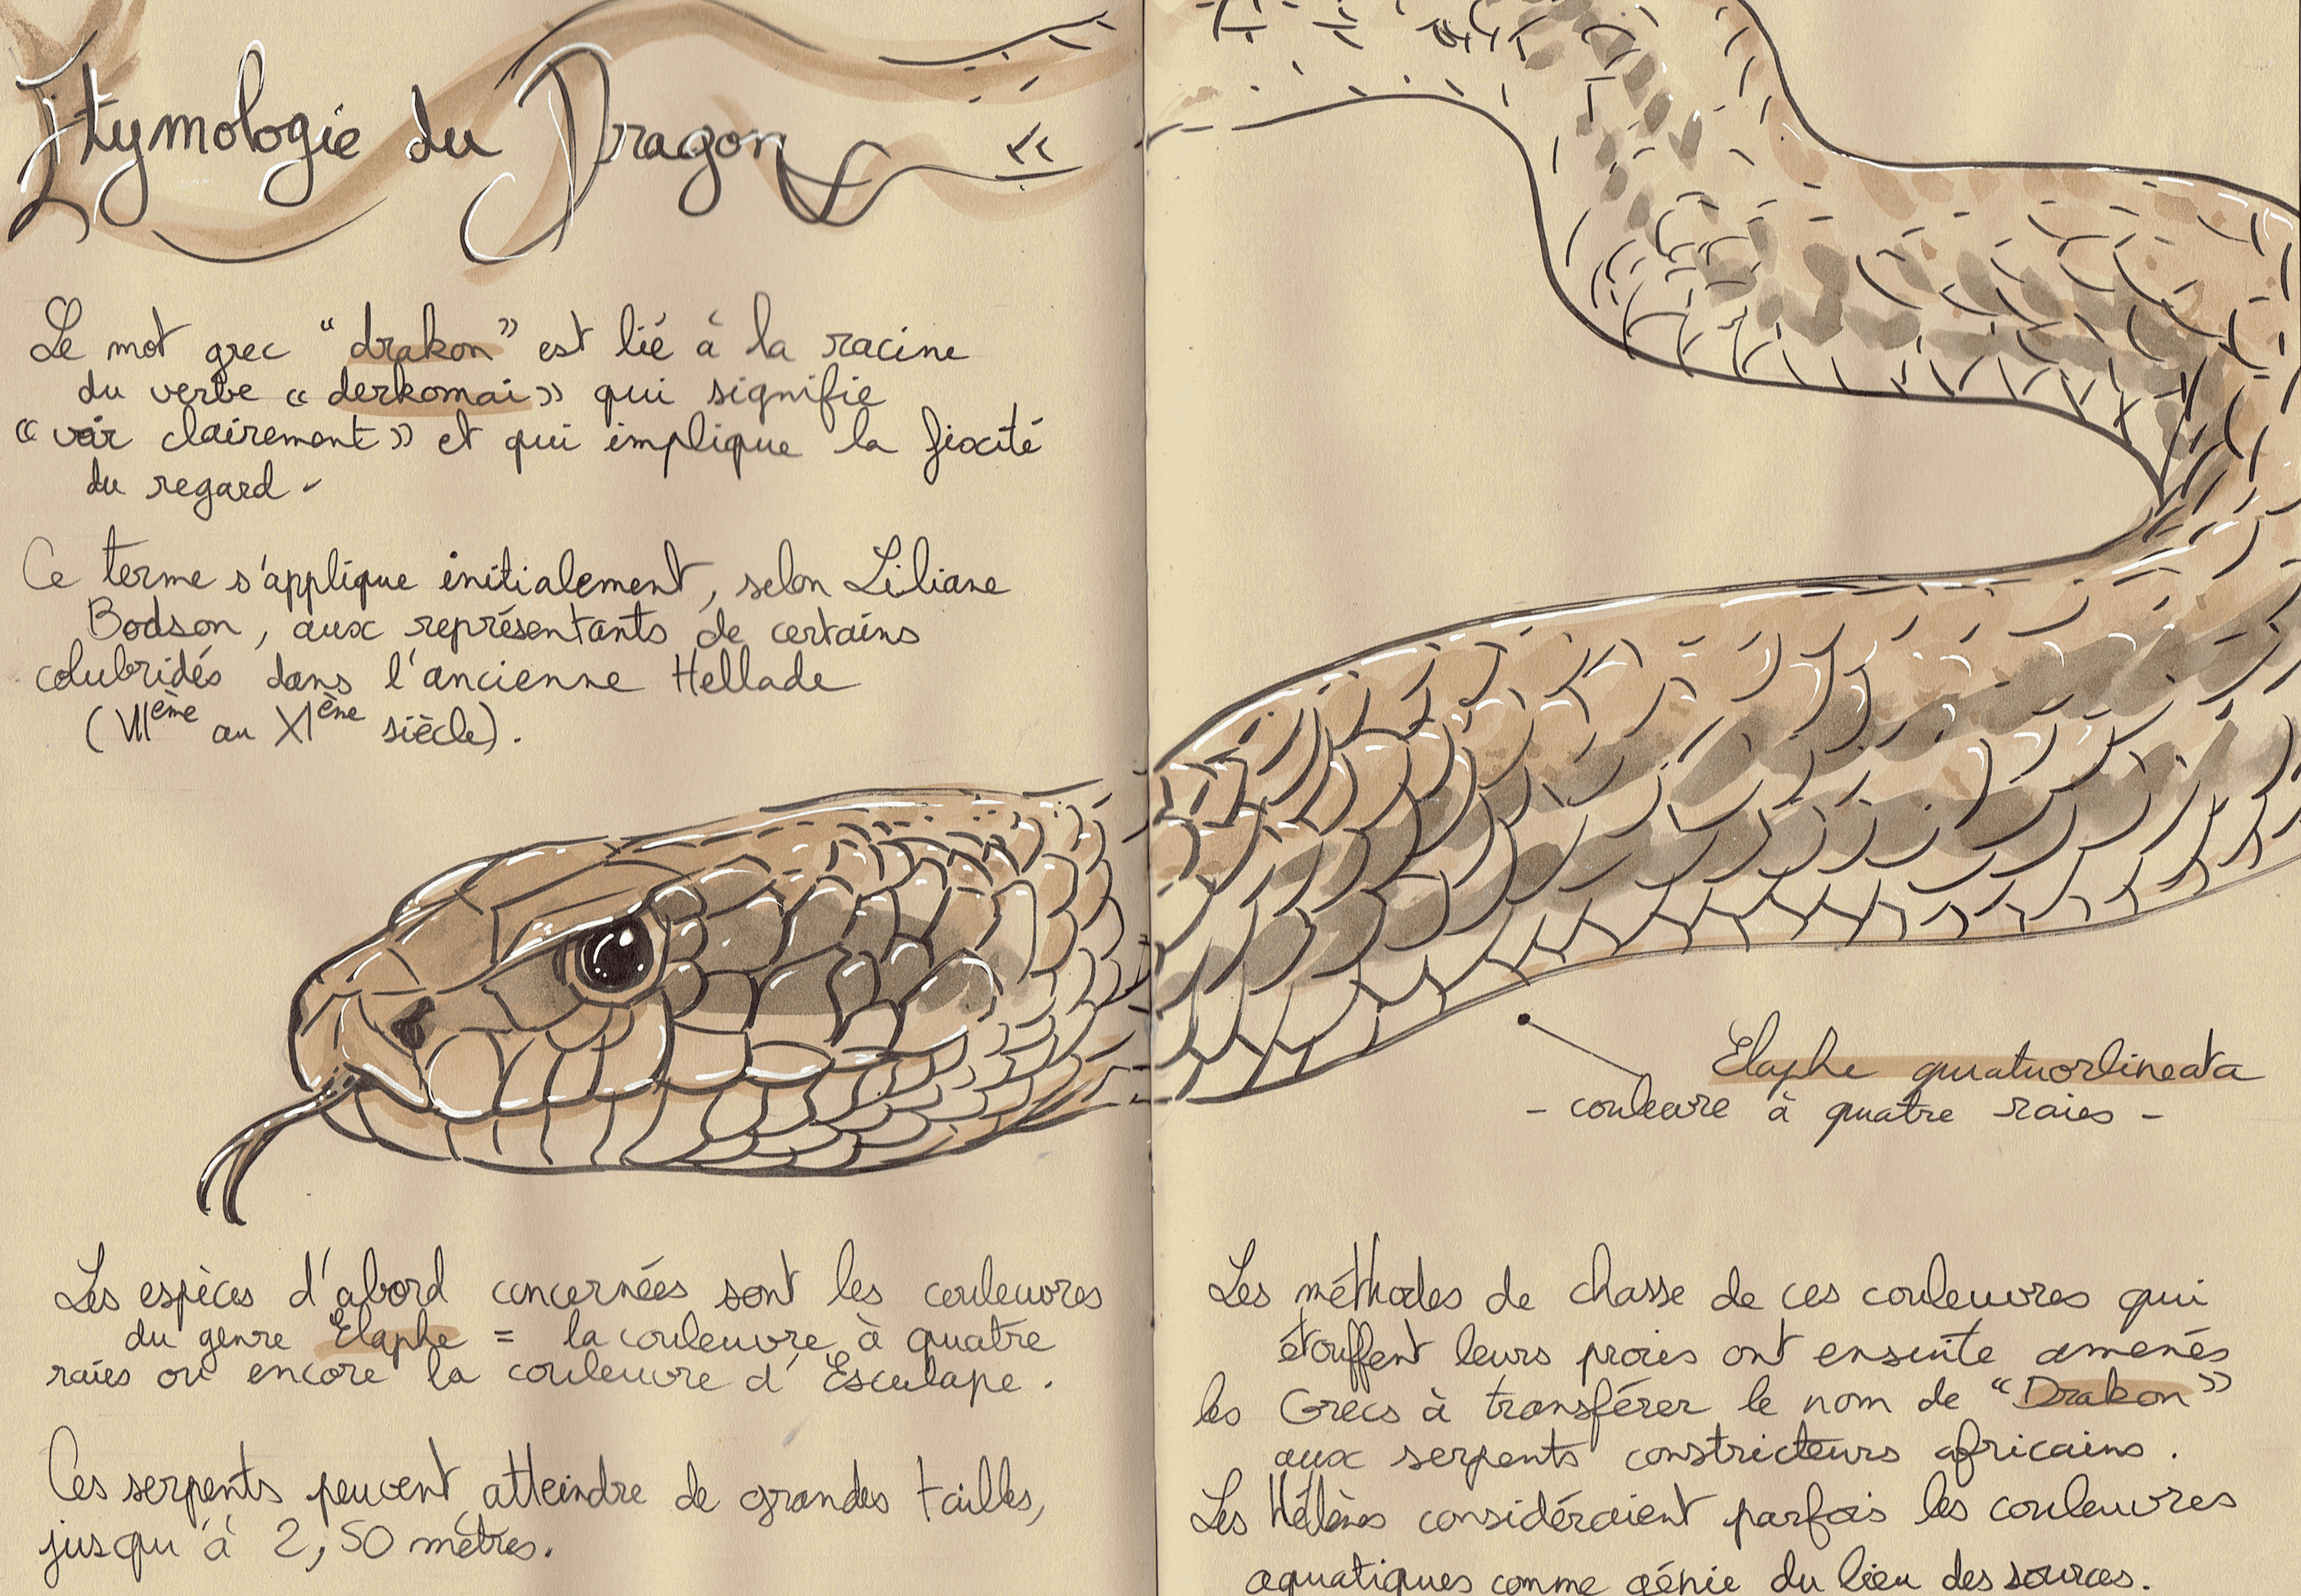 Etymologie du Dragon
Le mot grec “drakon” est lié à la racine
du verbe « derkomai » qui signifie
« voir clairement » et qui implique la fixité
du regard -
Ce terme s'applique initialement, selon Liliane
Bodson, aux représentants de certains
colubridés dans l'ancienne Hellade
(VIIème au XIène siècle).
Les espèces d'abord concernées sont les couleuvres
du genre Elaphe = la couleuvre à quatre
raies ou encore la couleuvre d'Esculape.
Ces serpents peuvent atteindre de grandes tailles,
jusqu'à 2,50 mètres.
Elaphe quatuorlineata
- couleuvre à quatre raies -
Les méthodes de chasse de ces couleuvres qui
étouffent leurs proies ont ensuite amenés
les Grecs à transférer le nom de “Drakon”
aux serpents constricteurs africains.
Les Hélènes considéraient parfois les couleuvres
aquatiques comme génie du lieu des sources.